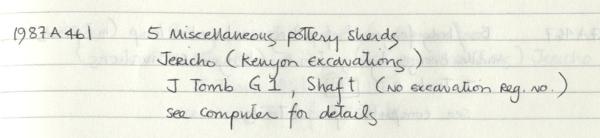 1987A461 5 Miscellaneous pottery sherds
Jericho (Kenyon excavations)
J Tomb G1, Shaft (No excavation Reg. no.)
see computer for details